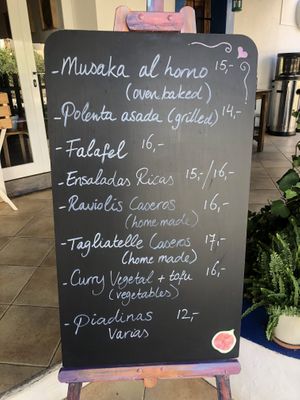 - Musaka al horno 15,-
(oven baked)
- Polenta asada (grilled) 14,-
- Falafel 16,-
- Ensaladas Ricas 15,-/16,-
- Raviolis Caseros 16,-
(home made)
- Tagliatelle Caseros 17,-
(home made)
- Curry Vegetal + tofu 16,-
(vegetables)
- Piadinas 12,-
Varias